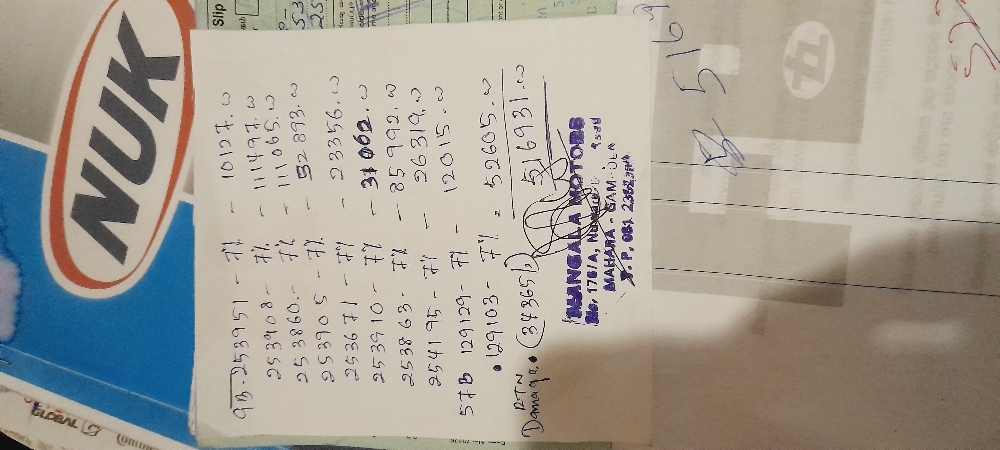 NUK
Slip
9B - 253951 - 7% - 10127.00
253908 - 7% - 111497.00
253860 - 7% - 111065.00
253905 - 7% - 52893.00
253671 - 7% - 23356.00
253910 - 7% - 31062.00
253863 - 7% - 85992.00
254195 - 7% - 26319.00
57B 129129 - 7% - 12015.00
129103 - 7% - 52605.00
RTN
Damage. (34365/)
516931.00
MANGALA MOTORS
No, 176/A,
MAHARA - GAM
T.P. 081
GLOBAL